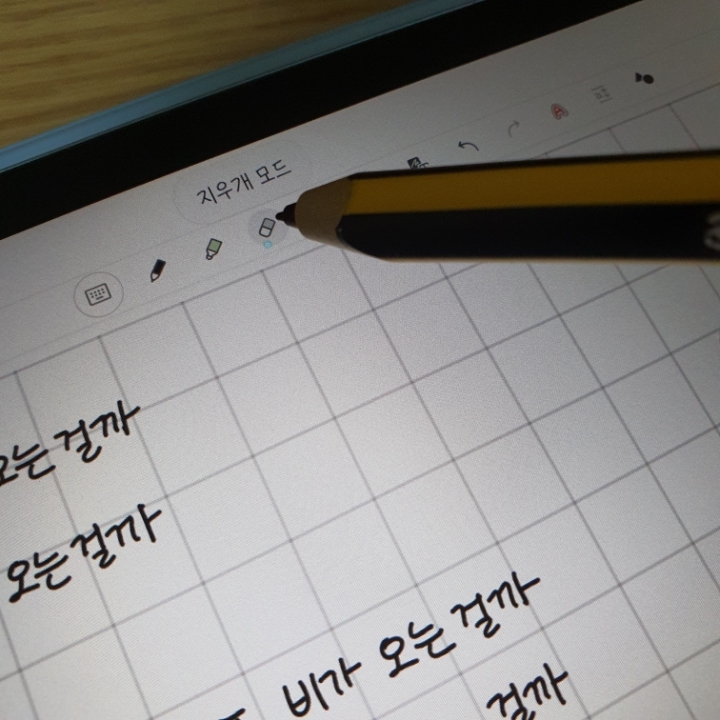 지우개 모드
오는걸까
오는걸까
비가 오는걸까
걸까